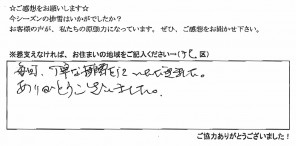 ☆ご感想をお願いします☆
今シーズンの排雪はいかがでしたか？
お客様の声が、私たちの原動力になっています。ぜひ、ご感想をお聞かせ下さい。
※差支えなければ、お住まいの地域をご記入ください→( 区)
毎回、丁寧な排雪を
ありがとうございました。
ご協力ありがとうございました！